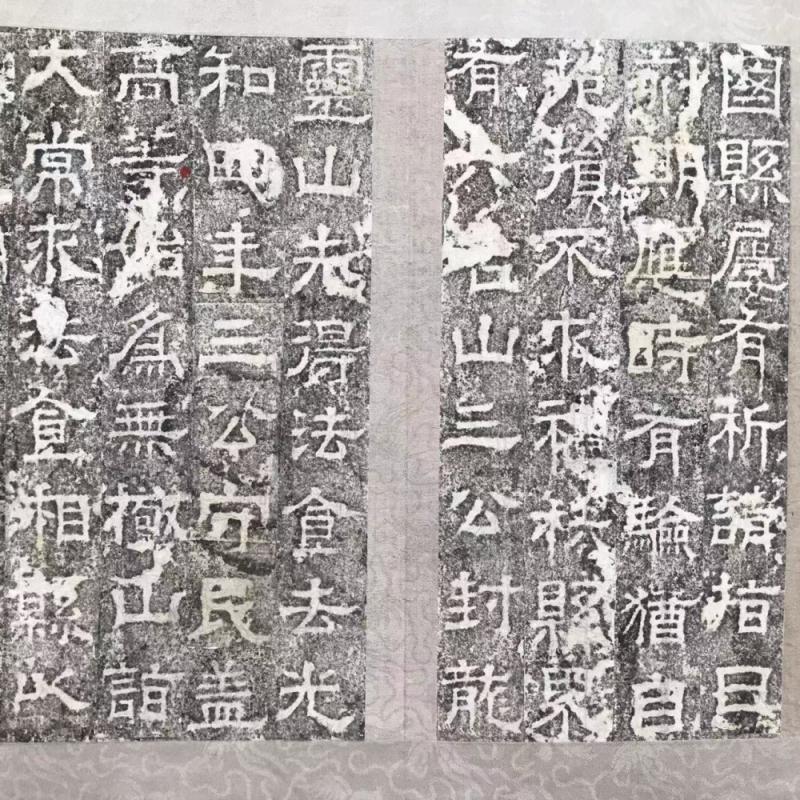 國縣屬有祈請指日
刻期應時有驗猶自
挹損不求禮秩縣界
有六名山三公封龍
靈山先得法食去光
和四年三公守民蓋
高等始爲無極山詣
大常求法食相縣以